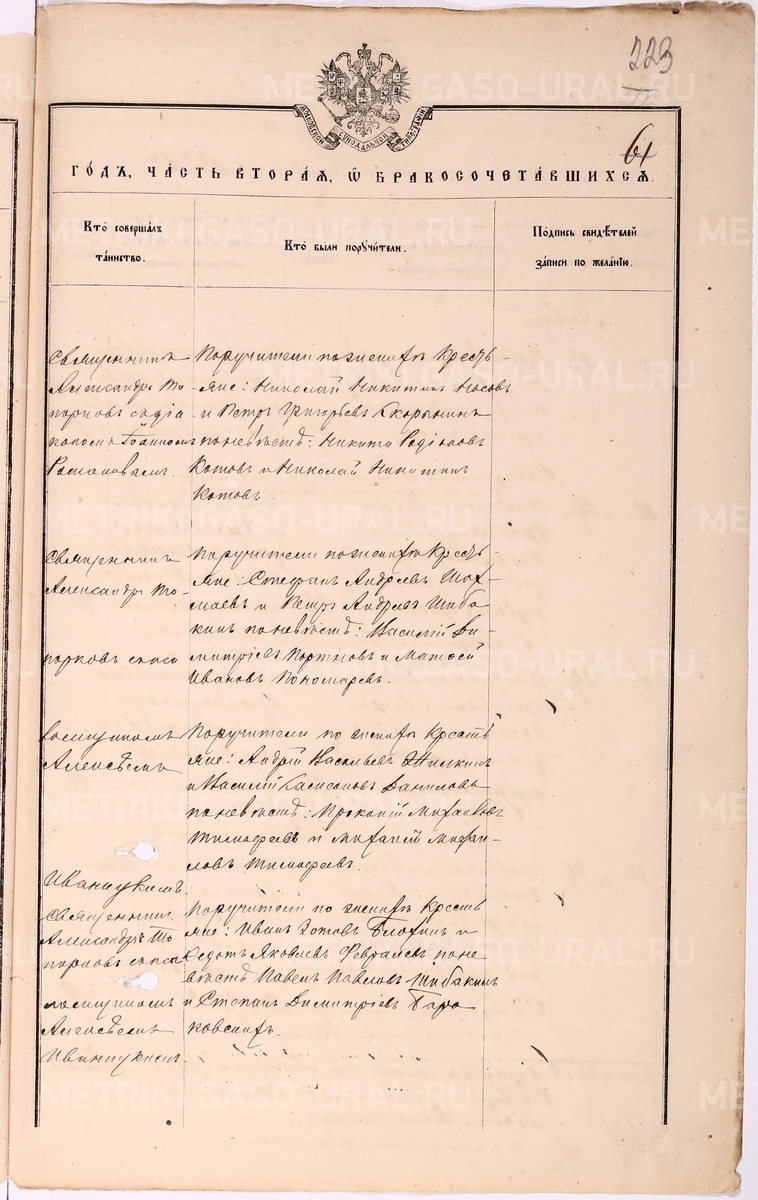 223
МОСКОВСКОЙ СѴНОДАЛЬНОЙ ТИПОГРАФІИ
61
ГО́ДЪ, ЧА́СТЬ ВТОРА́Я, Ѡ БРАКОСОЧЕТА́ВШИХСЯ.
Кто̀ соверша́лъ
та́инство.
Кто̀ бы́ли порꙋчи́тели.
По́дпись свидѣ́телей
за́писи по жела́нїю.
Священникъ
Александръ То
порковъ съ діа
кономъ Іоанномъ
Романовымъ.
Поручители по женихѣ Кресть-
яне: Николай Никитинъ Носовъ
и Петръ Григорьевъ Скорынинъ
по невѣстѣ: Никита Родіоновъ
Котовъ и Николай Никитинъ
Котовъ.
Священникъ
Александръ То-
порковъ съ псо
Поручители по женихѣ Кресть-
яне: Стефанъ Андреевъ
и Петръ Андреевъ Шиба
кинъ по невѣстѣ: Василій Ди-
митріевъ Портновъ и Матѳей
Ивановъ Пономаревъ.
ломщикомъ
Алексѣемъ
Иваницкимъ.
Поручители по женихѣ Крестъ
яне: Андрей Васильевъ
и Василій Даниловъ
по невѣстѣ: Прокопій Михаиловъ
Тимофеевъ и Михаилъ Михаи-
ловъ Тимофеевъ.
Священникъ
Александръ То
порковъ съ пса
ломщикомъ
Алексѣемъ
Иваницкимъ.
Поручители по женихѣ Кресть
яне: Иванъ Зотовъ и
Ѳедотъ Яковлевъ Февралевъ по не
вѣстѣ Павелъ Павловъ Шибакинъ
и Степанъ Димитріевъ Бара
ковскихъ.
METRIKI.GASO-URAL.RU